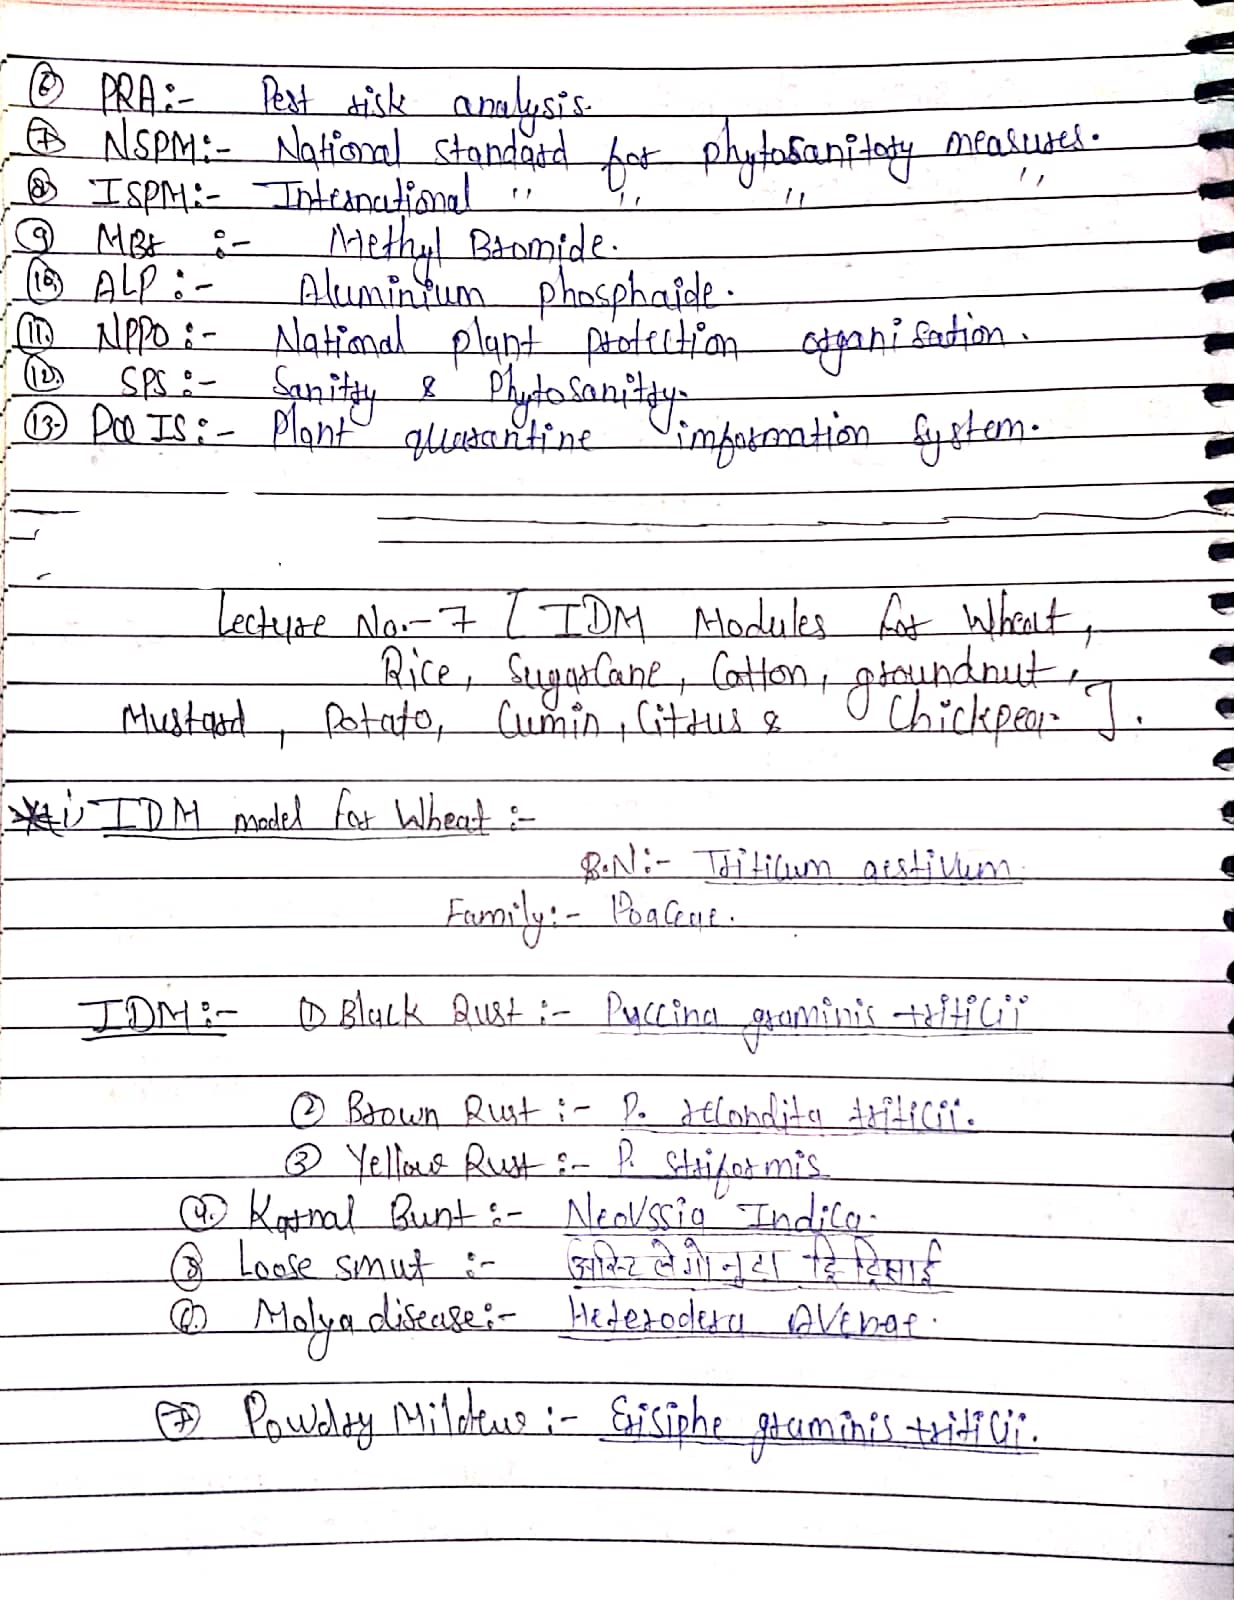 ⑥ PRA:- Pest risk analysis.
⑦ NSPM:- National Standard for phytosanitory measures.
⑧ ISPM:- International " " " "
⑨ MBr :- Methyl Bromide.
⑩ ALP:- Aluminium phosphaide.
⑪ NPPO:- National plant protection organisation.
⑫ SPS:- Sanitry & Phytosanitry.
⑬ PQIS:- Plant quarantine information System.
Lecture No.- 7 [ IDM Modules for Wheat,
Rice, SugarCane, Cotton, groundnut,
Mustard, Potato, Cumin, Citrus & Chickpea ].
i) IDM model for Wheat :-
B.N:- Triticum aestivum.
Family:- Poaceae.
IDM:- ① Black Rust :- Puccina graminis triticii
② Brown Rust :- P. recondita triticii.
③ Yellow Rust :- P. striformis
④ Karnal Bunt :- Neovssia Indica.
⑤ Loose smut :-
⑥ Molya disease:- Heterodera Avenae.
⑦ Powdry Mildew :- Erisiphe graminis triticii.